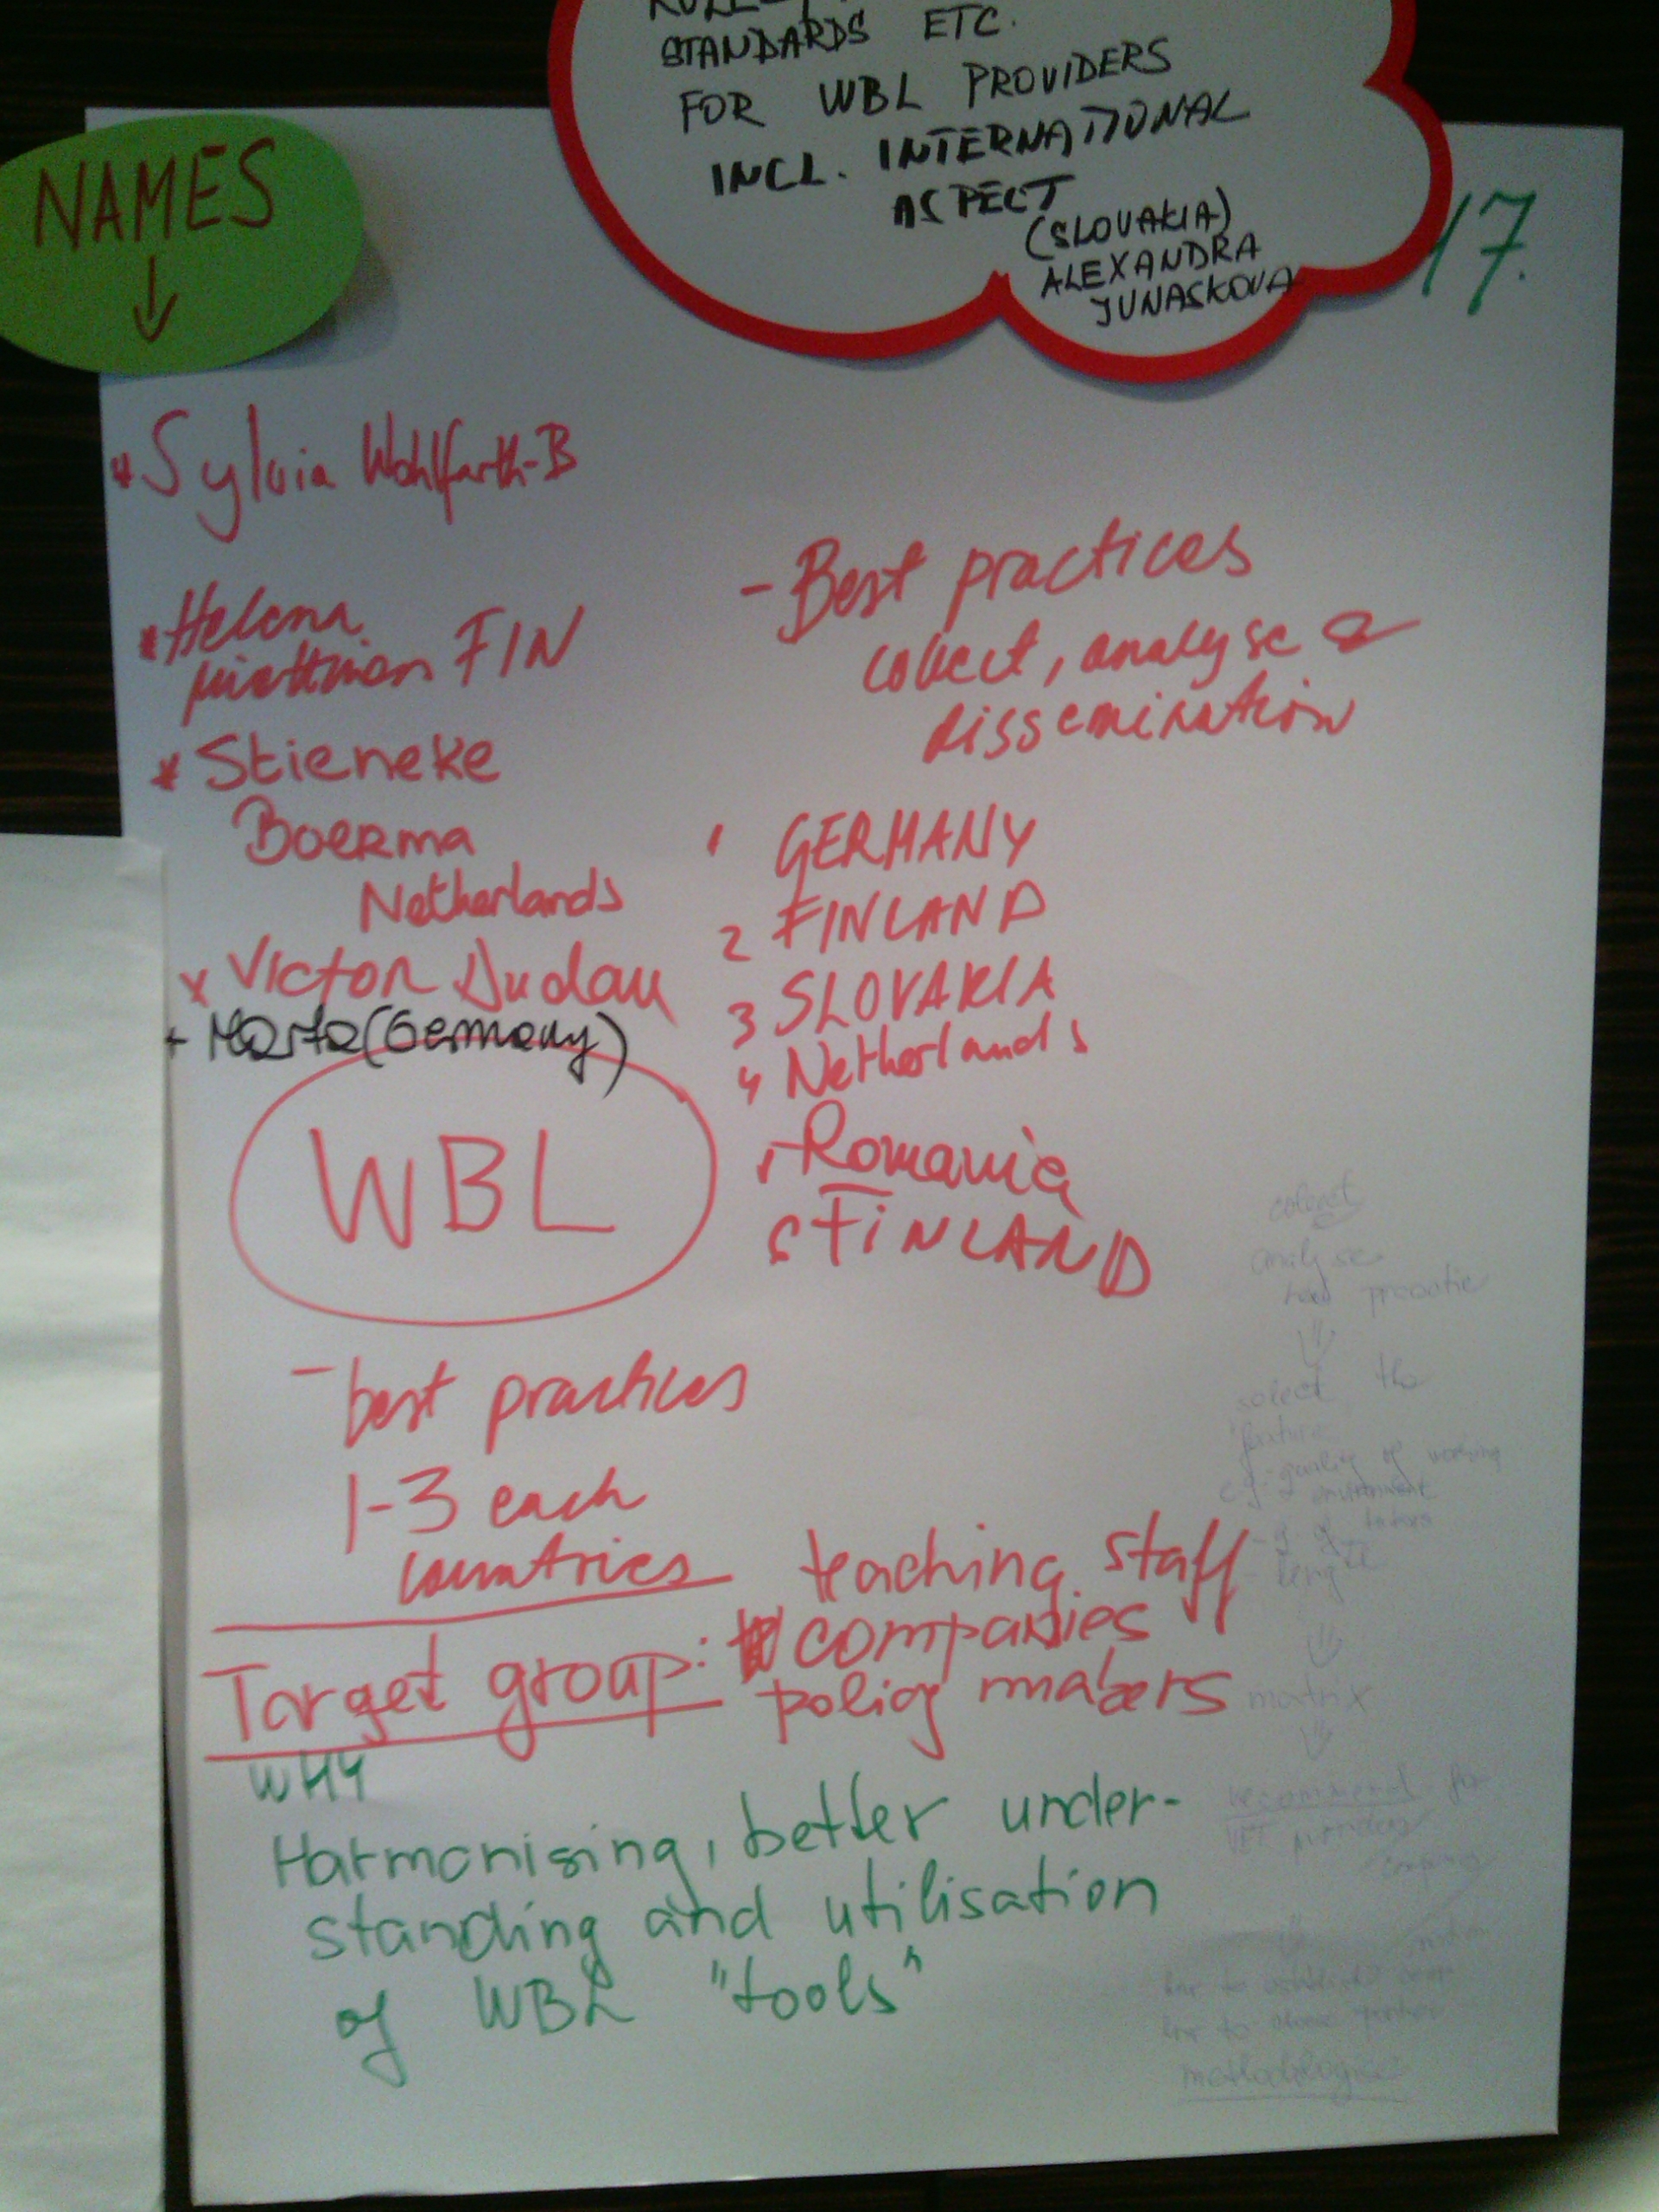 STANDARDS ETC.
FOR WBL PROVIDERS
INCL. INTERNATIONAL
ASPECT
(SLOVAKIA)
ALEXANDRA
JUNASKOVA
17.
NAMES
↓
* Sylvia Wohlfarth-B
* Helena
FIN
* Stieneke
Boerma
Netherlands
x Victor Dudau
+ Marta (Germany)
- Best practices
collect, analyse &
dissemination
1 GERMANY
2 FINLAND
3 SLOVAKIA
4 Netherlands
Romania
FINLAND
WBL
- best practices
1-3 each
countries
Target group:
teaching staff
companies
policy makers
WHY
Harmonising, better under-
standing and utilisation
of WBL "tools"
colect
analyse
select the
e.g. quality of working
environment
matrix
recommend for
VET providers
methodologies